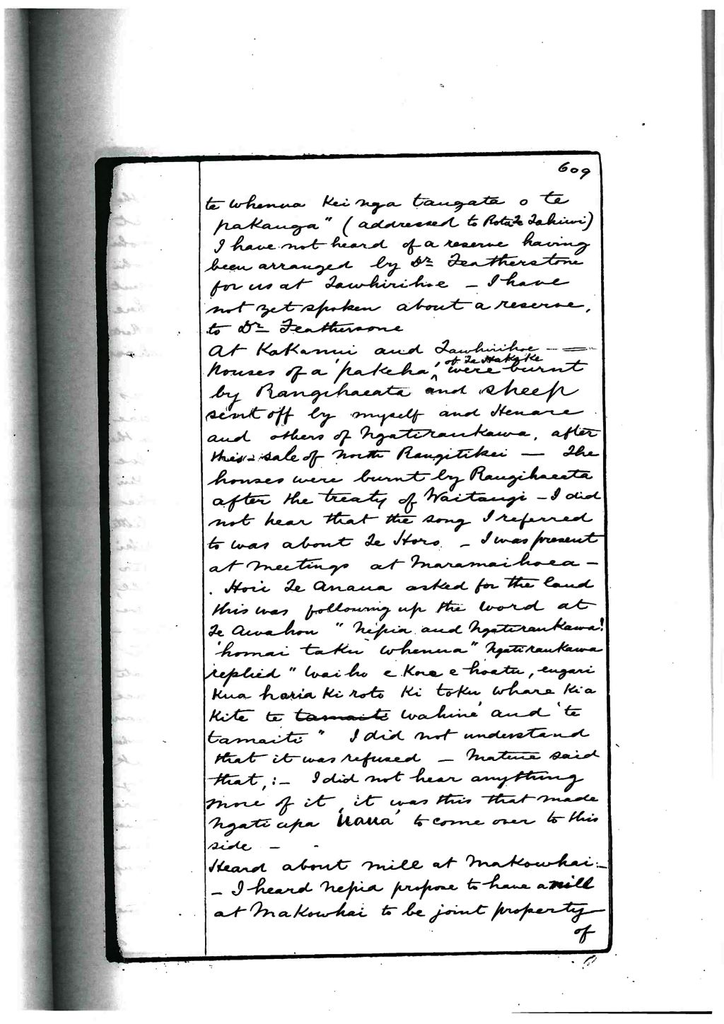 609
te whenua kei nga tangata o te
pakanga" (addressed to Rota Te Tahiwi)
I have not heard of a reserve having
been arranged by Dr Featherstone
for us at Tawhirihoe - I have
not yet spoken about a reserve,
to Dr Feathersone
At Kakanui and Tawhirihoe -
Houses of a 'pakeha', of Te Hakeke were burnt
by Rangihaeata and sheep
sent off by myself and Henare
and others of Ngatiraukawa, after
this sale of North Rangitikei - The
houses were burnt by Rangihaeata
after the treaty of Waitangi - I did
not hear that the song I referred
to was about Te Horo - I was present
at meetings at Maramaihoea -
. Hoie Te Anaua asked for the land
this was following up the word at
Te Awahou "Nepia and Ngatiraukawa!
'homai taku whenua" Ngatiraukawa
replied "waiho e kore e hoatu, engari
kua haria ki roto ki toku whare kia
kite te tamaiti wahine' and 'te
tamaiti" I did not understand
that it was refused - Matene said
that, :- I did not hear anything
more of it, it was this that made
Ngatiapa 'ilaua' to come over to this
side - -
Heard about mill at Makowhai:-
- I heard Nepia propose to have a mill
at Makowhai to be joint property
of